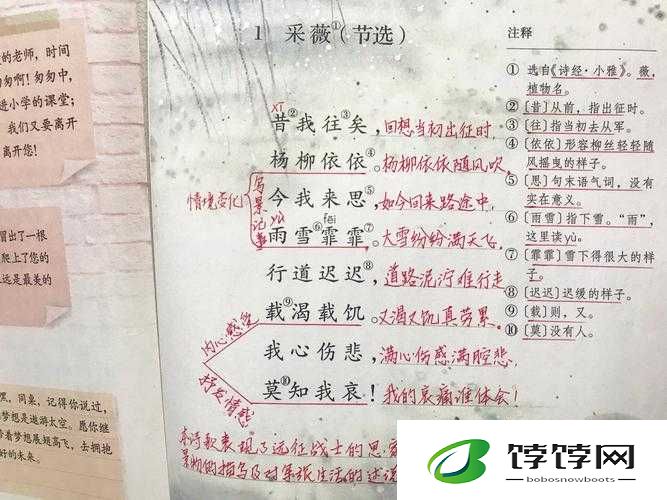 的老师，时间
匆啊！匆匆中，
进小学的课堂；
我们又要离开
离开您！
冒出了一根
爬上了您的
远是最美的
黑，同桌，记得你说过，
梦想是遨游太空。愿你继
着梦想展翅高飞，去拥抱
好的未来。
1 采薇①（节选）
XT
昔②我往③矣，回想当初出征时
杨柳依依④。杨柳依依随风吹，
情境变化
写景记事
今我来思⑤，如今回来路途中，
yù fēi
雨雪⑥霏霏⑦。大雪纷纷满天飞，
行道迟迟⑧，道路泥泞难行走
载⑨渴载饥。又渴又饥真劳累。
内心感受
我心伤悲，满心伤感满腔悲，
莫⑩知我哀！我的哀痛谁体会！
抒发情感
本诗歌表现了远征战士的思
景物的描写及对军旅生活的述说
注释
①选自《诗经·小雅》。薇，
植物名。
②〔昔〕从前，指出征时。
③〔往〕指当初去从军。
④〔依依〕形容柳丝轻轻随
风摇曳的样子。
⑤〔思〕句末语气词，没有
实在意义。
⑥〔雨雪〕指下雪。“雨”，
这里读yù。
⑦〔霏霏〕雪下得很大的样
子。
⑧〔迟迟〕迟缓的样子。
⑨〔载〕则，又。
⑩〔莫〕没有人。
饽饽网
bobosnowboots